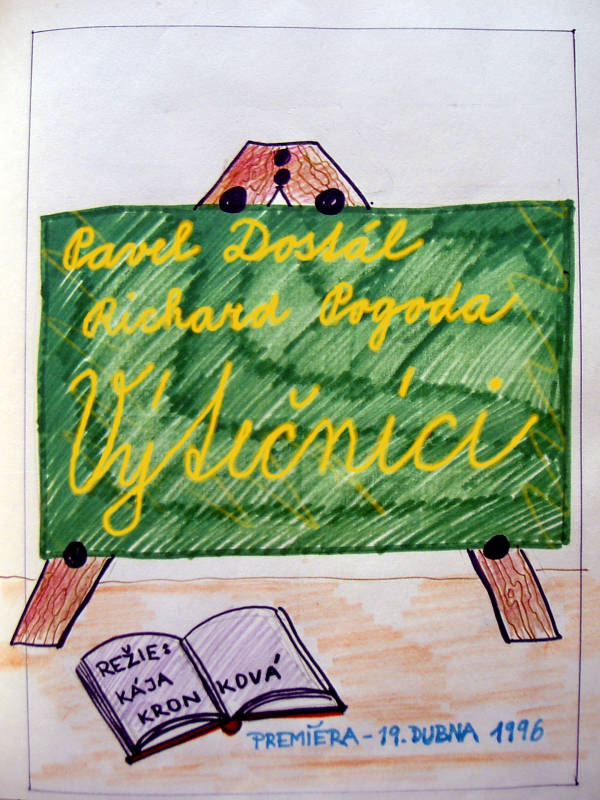 Pavel Dostál
Richard Pogoda
Výtečníci
REŽIE:
KÁJA
KRONKOVÁ
PREMIÉRA - 19. DUBNA 1996